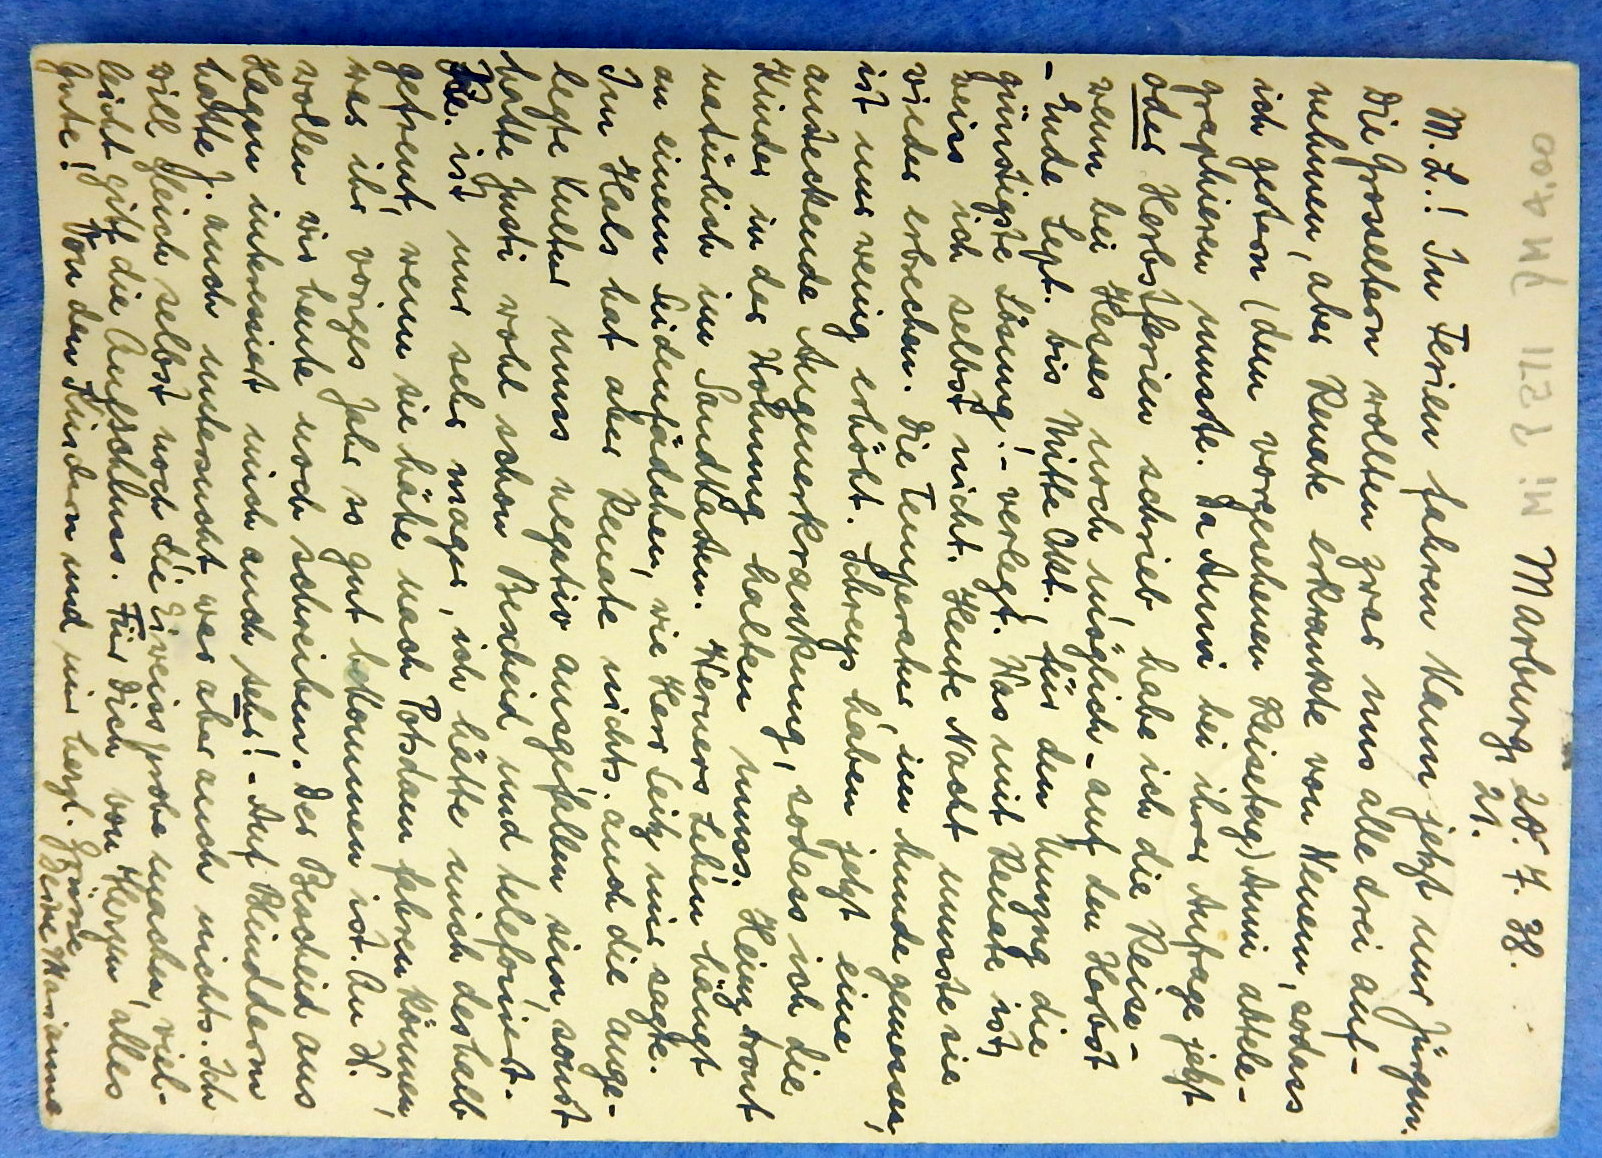 Marburg 20. 7. 38.
21.
M. L.! In Ferien fahren kann jetzt nur Jürgen.
Die Grosseltern wollten zwar nun alle drei auf-
nehmen, aber Renate erkrankte von Neuem, sodass
ich gestern (dem vorgesehenen Reisetag) Anni abtele-
graphieren musste. Da Anni bei ihrer Anfrage jetzt
oder Herbstferien schrieb habe ich die Reise-
wenn bei Hesses noch möglich - auf den Herbst
- Ende Sept. bis Mitte Okt. für den Umzug die
günstigste Lösung! - verlegt. Was mit Renate ist,
weiss ich selbst nicht. Heute Nacht musste sie
wieder erbrechen. Die Temperatur, im Munde gemessen,
ist nur wenig erhöht. Schreys haben jetzt eine
ansteckende Augenerkrankung, sodass ich die
Kinder in der Wohnung halten muss. Heinz tront
natürlich im Sandkasten. Werners Leben hängt
an einem Seidenfädchen, wie Herr Seitz mir sagte.
Im Hals hat aber Renate nichts. auch die ange-
legte Kultur muss negativ ausgefallen sein, sonst
hätte Justi wohl schon Bescheid und telefoniert.
Re. ist nur sehr mager, ich hätte mich deshalb
gefreut, wenn sie hätte nach Potsdam fahren können,
was ihr voriges Jahr so gut bekommen ist. An H.
wollen wir heute noch schreiben. Der Bescheid aus
Hagen interessiert mich auch sehr! - Auf Blinddarm
hatte J. auch untersucht, war aber auch nichts. Ich
will gleich selbst noch die Eiweissprobe machen, viel-
leicht gibt die Aufschluss. Für Dich von Herzen alles
Gute! Von den Kindern und mir herzl. Grüsse
Deine Marianne
M! 2 SZ11 7,00